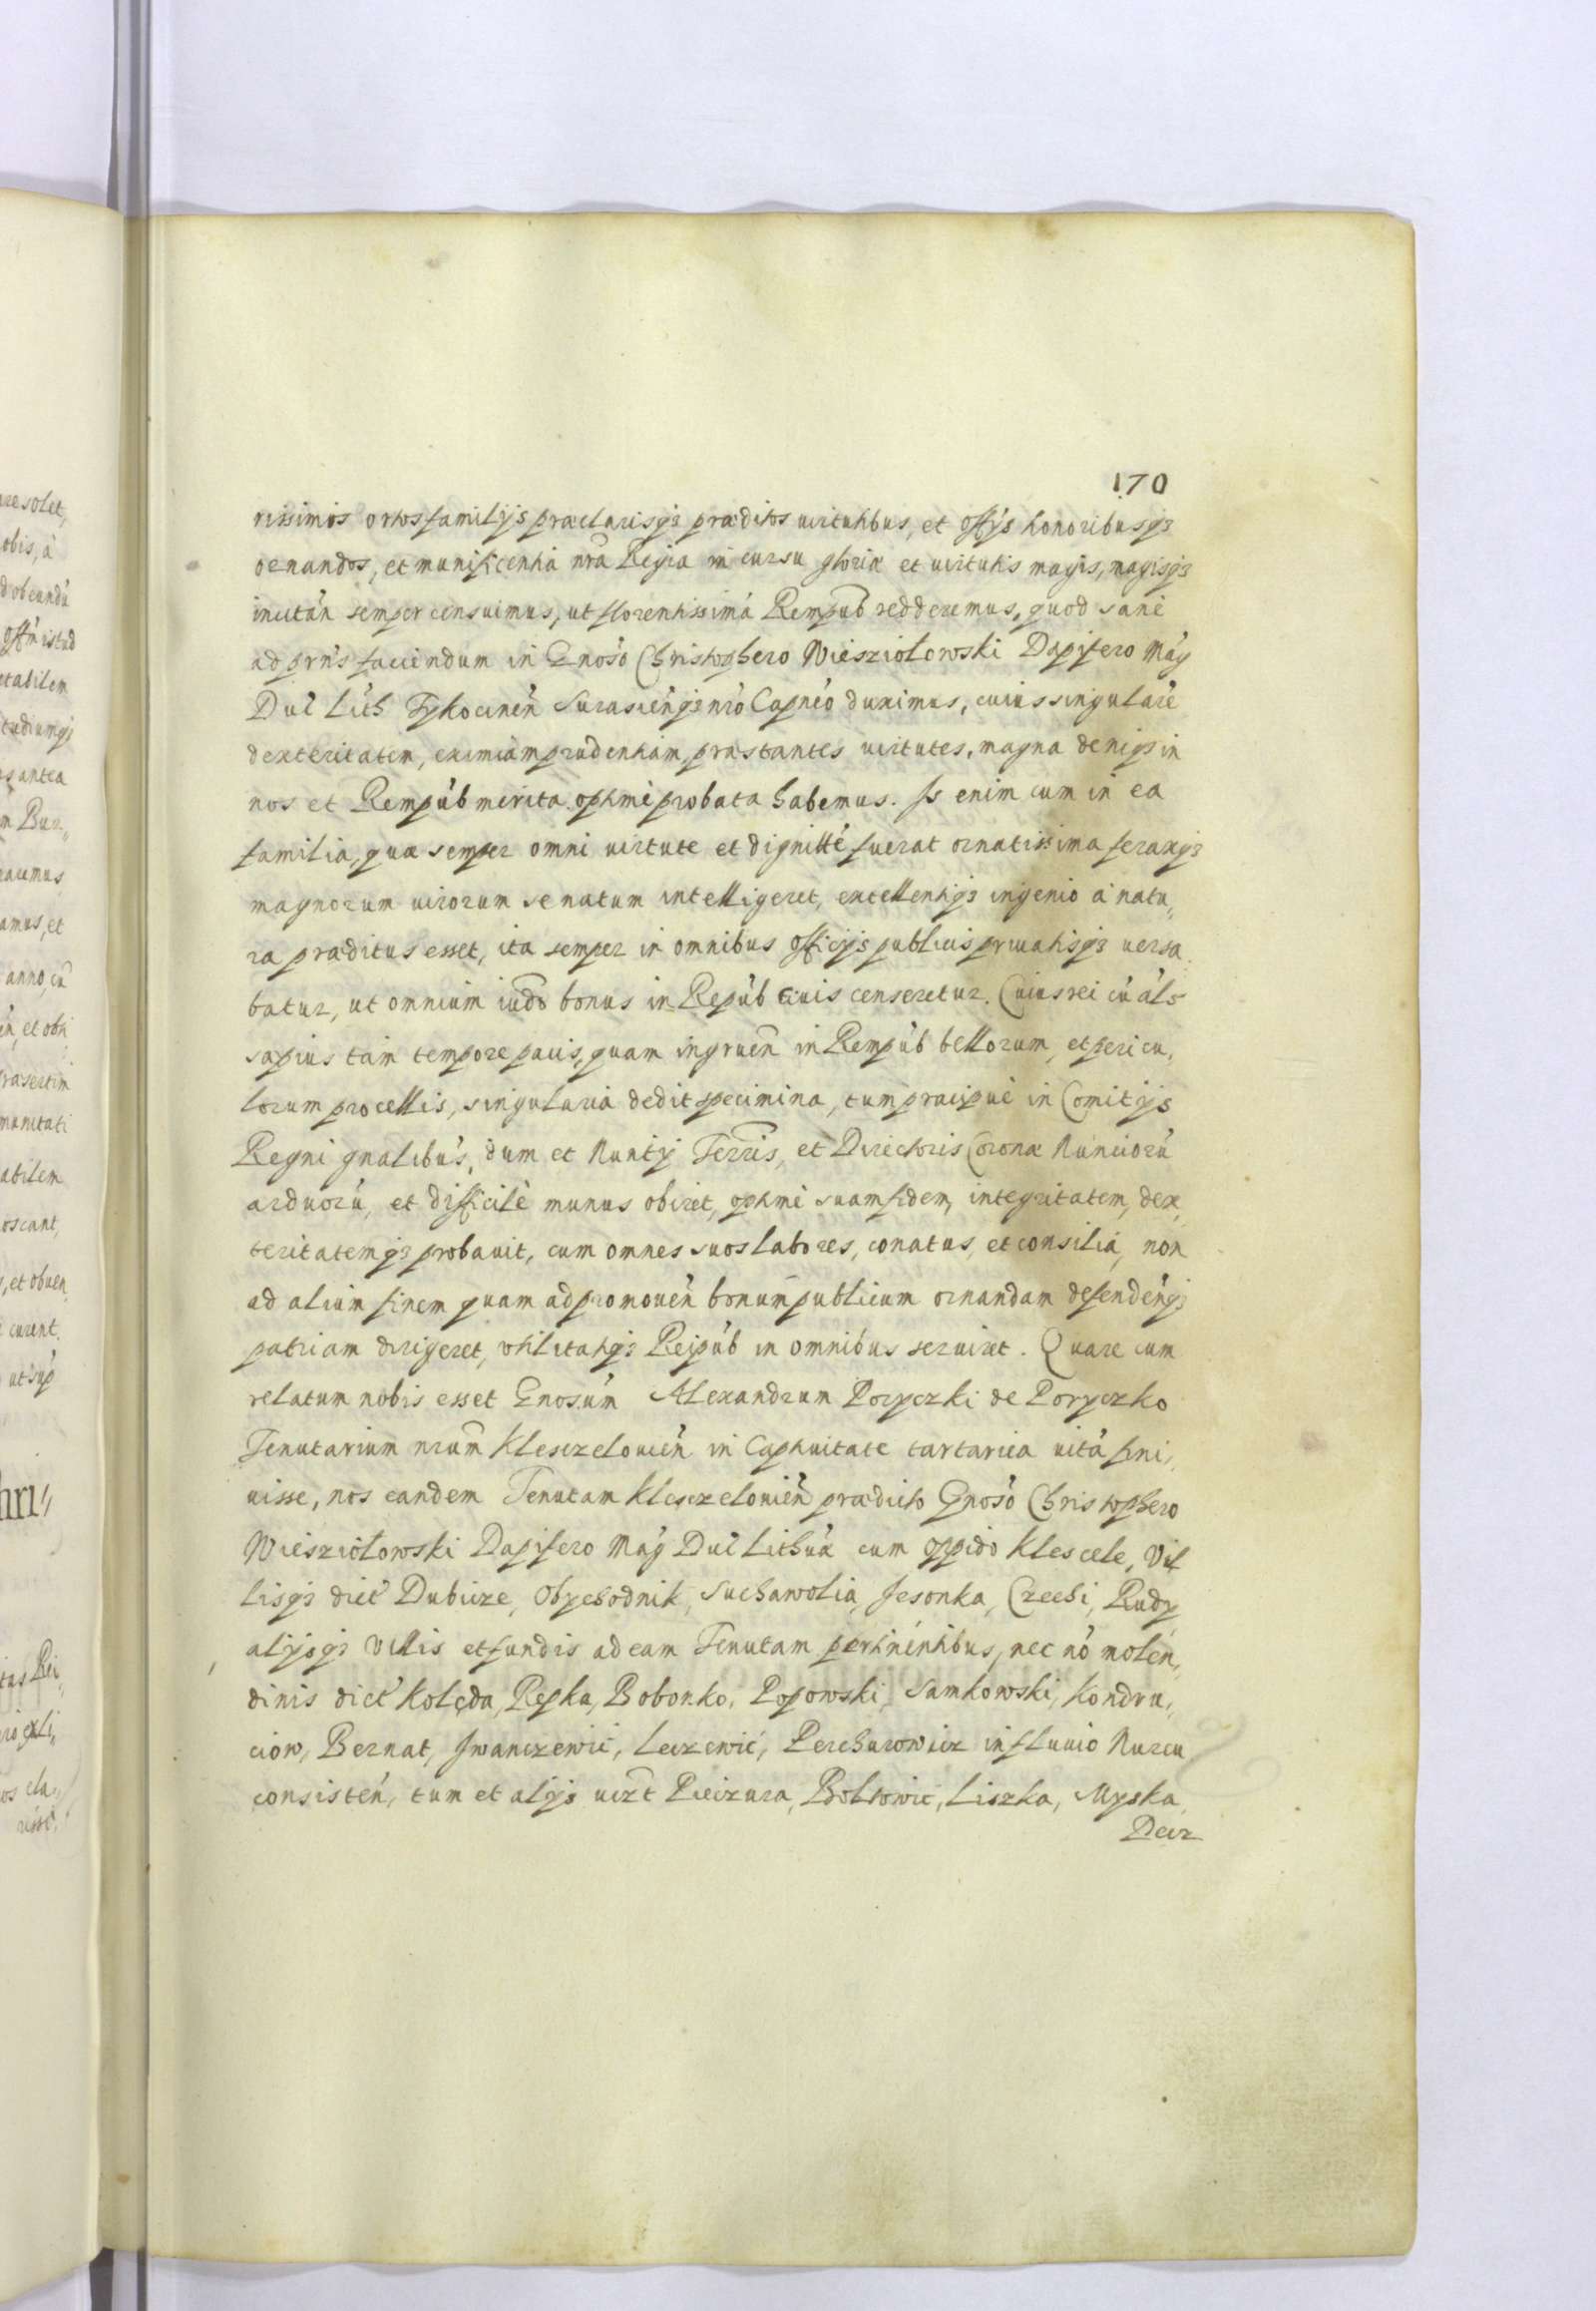 170
rissimos ortos familijs praeclarisq3 praeditos uirtutibus, et offijs honoribusq3
ornandos, et munificentia nra Regia in cursu gloriae et uirtutis magis, magisq3
incitan semper censuimus, ut florentissima Rempub redderemus, quod sane
ad prns faciendum in Gnoso Christophero Wiesziołowski Dapifero Mag
Duc Lith Tykocinen Surascienq3 nro Capneo duximus, cuius singulare
dexteritatem, eximiam prudentiam, prestantes uirtutes, magna deniq3 in
nos et Rempub merita optime probata habemus. Is enim cum in ea
familia, quae semper omni uirtute et dignitte fuerat ornatissima feraxq3
magnorum uirorum se natum intelligeret, excellentiq3 ingenio a natu„
ra praeditus esset, ita semper in omnibus officijs publicis priuatisq3 uersa
batur, ut omnium iudo bonus in Repub ciuis censeretur. Cuius rei cu als
saepius tam tempore pacis, quam ingruen in Rempub bellorum, et pericu,
lorum procellis, singularia dedit specimina, tum praecipue in Comitijs
Regni gnalibus, dum et Nuntij Terris, et Directoris Coronae Nuncioru
arduoru, et difficile munus obiret, optime suam fidem, integritatem, dex,
teritatemq3 probauit, cum omnes suos labores, conatus, et consilia, non
ad alium finem quam ad promouen bonum publicum ornandam defendenq3
patriam dirigeret, utilitatiq3 Reipub in omnibus seruiret. Quare cum
relatum nobis esset Gnosum Alexandrum Poryczki de Poryczko
Tenutarium nrum Kleszczelouien in Captiuitate tartarica uita fini„
uisse, nos eandem Tenutam Kleszczelouien praedicto Gnoso Christophero
Wiesziołowski Dapifero Mag Duc Lithuae cum oppido Klescele, Vil
lisq3 dict Dubicze, Obychodnik, Suchawolia, Jesonka, Czechi, Rudy
alijsq3 Villis et fundis ad eam Tenutam pertinentibus, nec no molen„
dinis dict Kolęda, Repka, Bobonko, Popowski, Samkowski, Kondra„
ciow, Bernat, Iwanczewic, Leczewic, Perchurowicz in fluuio Nurcu
consisten, tum et alijs uczt Pieczura, Boltowic, Liszka, Myska
Decz